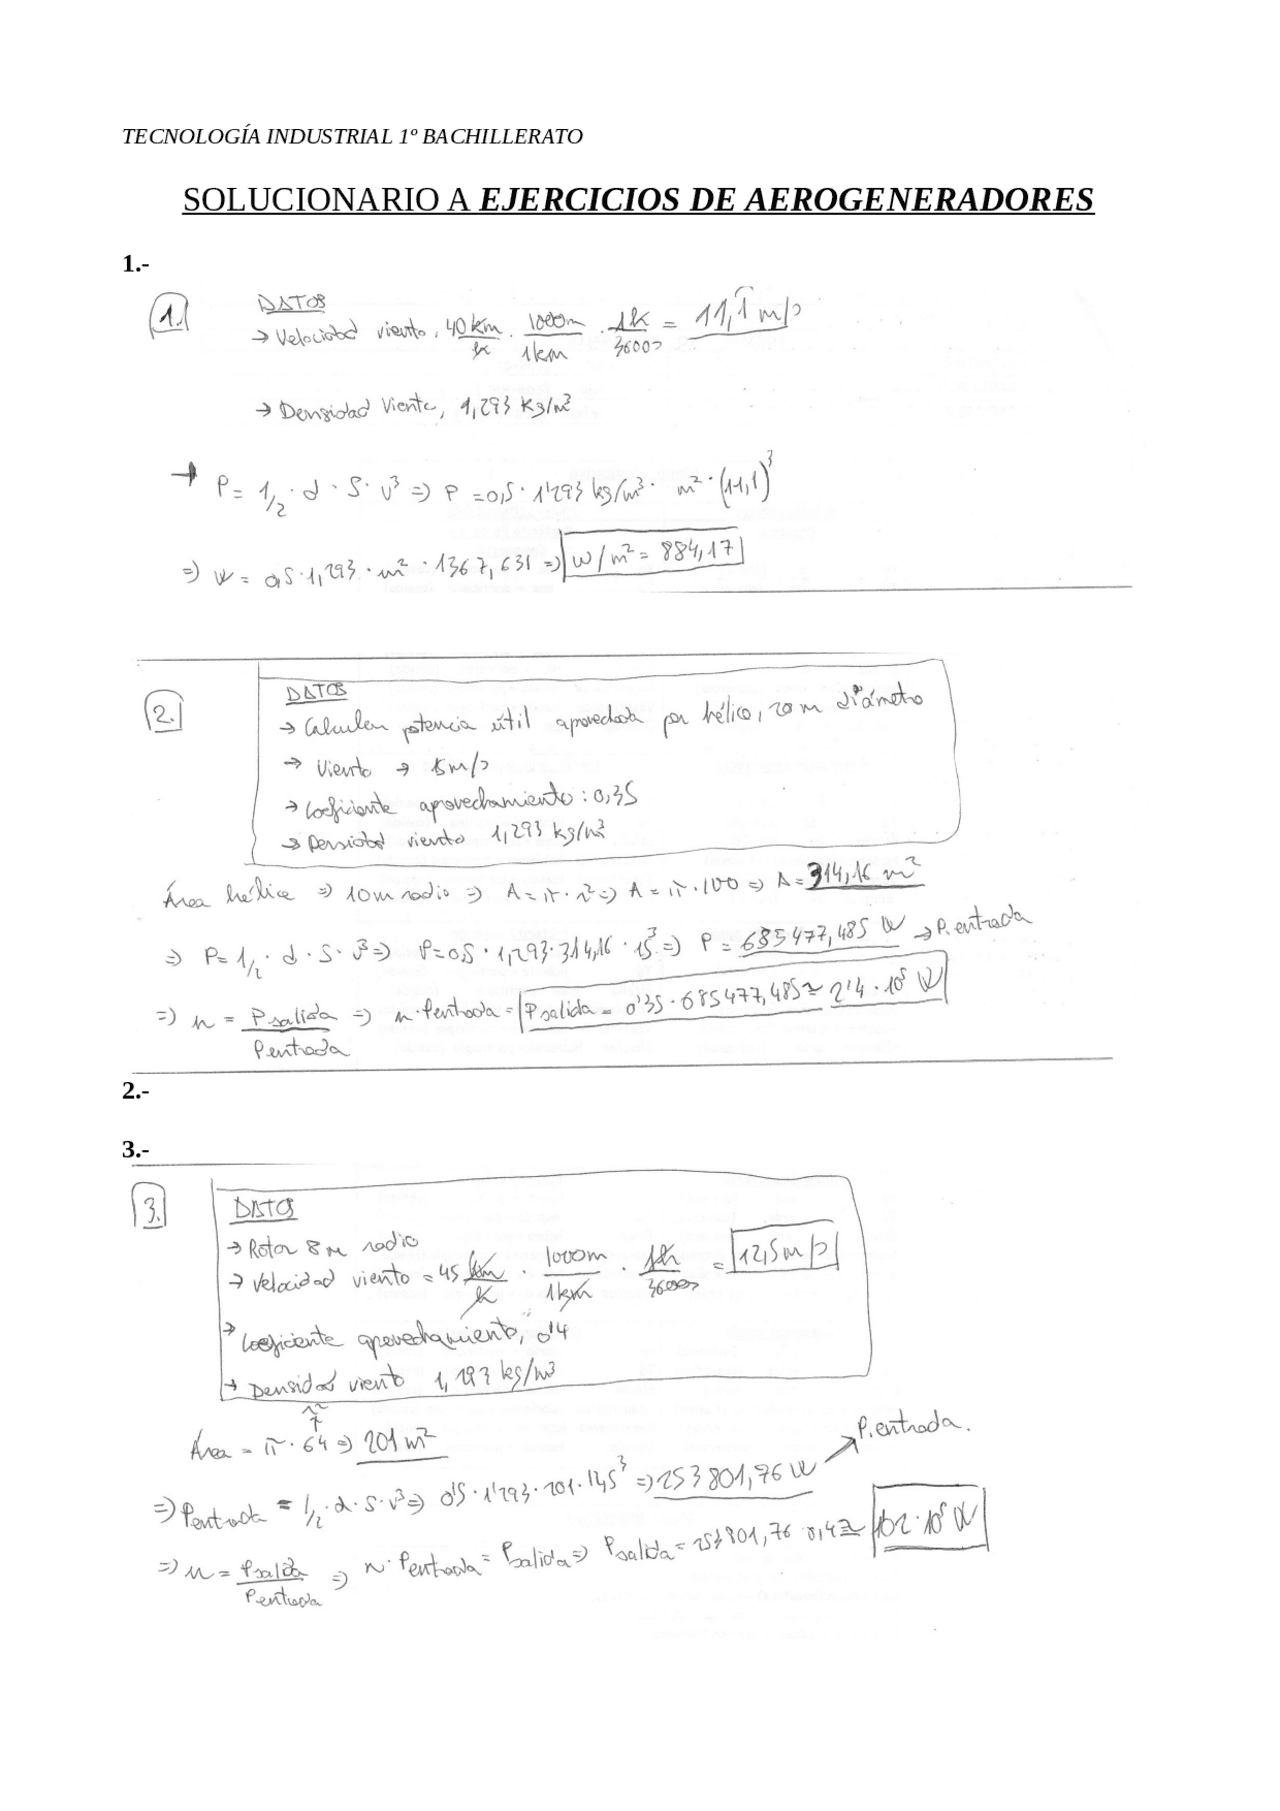 TECNOLOGÍA INDUSTRIAL 1º BACHILLERATO
SOLUCIONARIO A EJERCICIOS DE AEROGENERADORES
1.-
1. DATOS
→ Velocidad viento, 40 km/h · 1000m/1km · 1h/3600s = 11,1 m/s
→ Densidad Viento, 1,293 kg/m³
→ P = 1/2 · d · S · v³ ⇒ P = 0,5 · 1'293 kg/m³ · m² · (11,1)³
⇒ W = 0,5 · 1,293 · m² · 1367,631 ⇒ W/m² = 884,17
2. DATOS
→ Calculen potencia útil aprovechada por hélice, 20 m diámetro
→ Viento → 15 m/s
→ Coeficiente aprovechamiento: 0,35
→ Densidad viento 1,293 kg/m³
Área hélice ⇒ 10 m radio ⇒ A = π · r² ⇒ A = π · 100 ⇒ A = 314,16 m²
⇒ P = 1/2 · d · S · v³ ⇒ P = 0,5 · 1,293 · 314,16 · 15³ ⇒ P = 685477,485 W → P. entrada
⇒ n = P salida / P entrada ⇒ n · P entrada = P salida = 0'35 · 685477,485 ≃ 2'4 · 10⁵ W
2.-
3.-
3. DATOS
→ Rotor 8 m radio
→ Velocidad viento = 45 km/h · 1000m/1km · 1h/3600s = 12,5 m/s
→ Coeficiente aprovechamiento, 0'4
→ Densidad viento 1,293 kg/m³
r²
↑
Área = π · 64 ⇒ 201 m²
⇒ P entrada = 1/2 · d · S · v³ ⇒ 0'5 · 1'293 · 201 · 12,5³ ⇒ 253801,76 W → P. entrada.
⇒ n = P salida / P entrada ⇒ n · P entrada = P salida ⇒ P salida = 253801,76 · 0,4 ≃ 1'02 · 10⁵ W